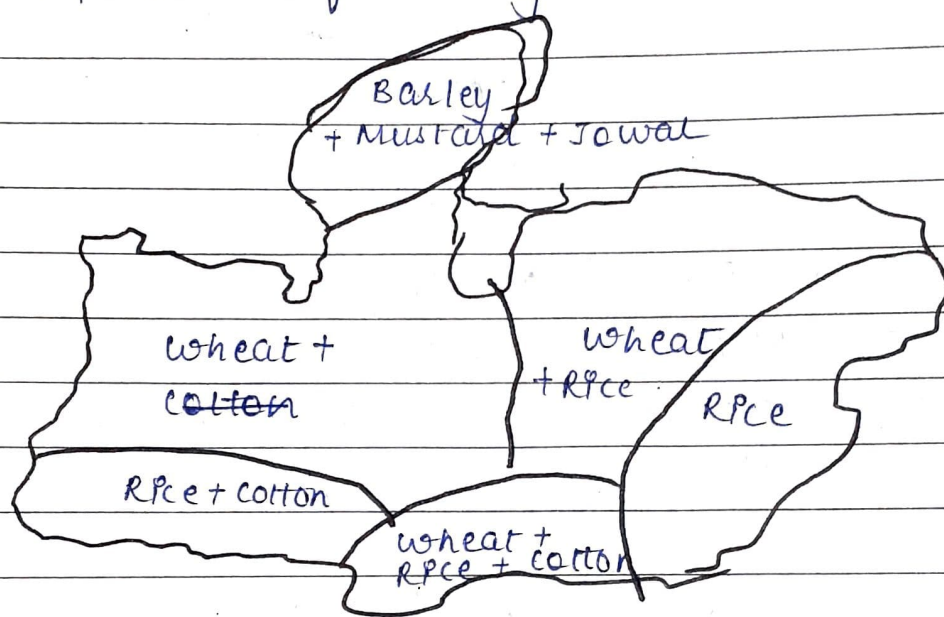 Barley
+ Mustard + Jowar
wheat +
cotton
wheat
+ Rice
Rice
Rice + cotton
wheat +
Rice + cotton